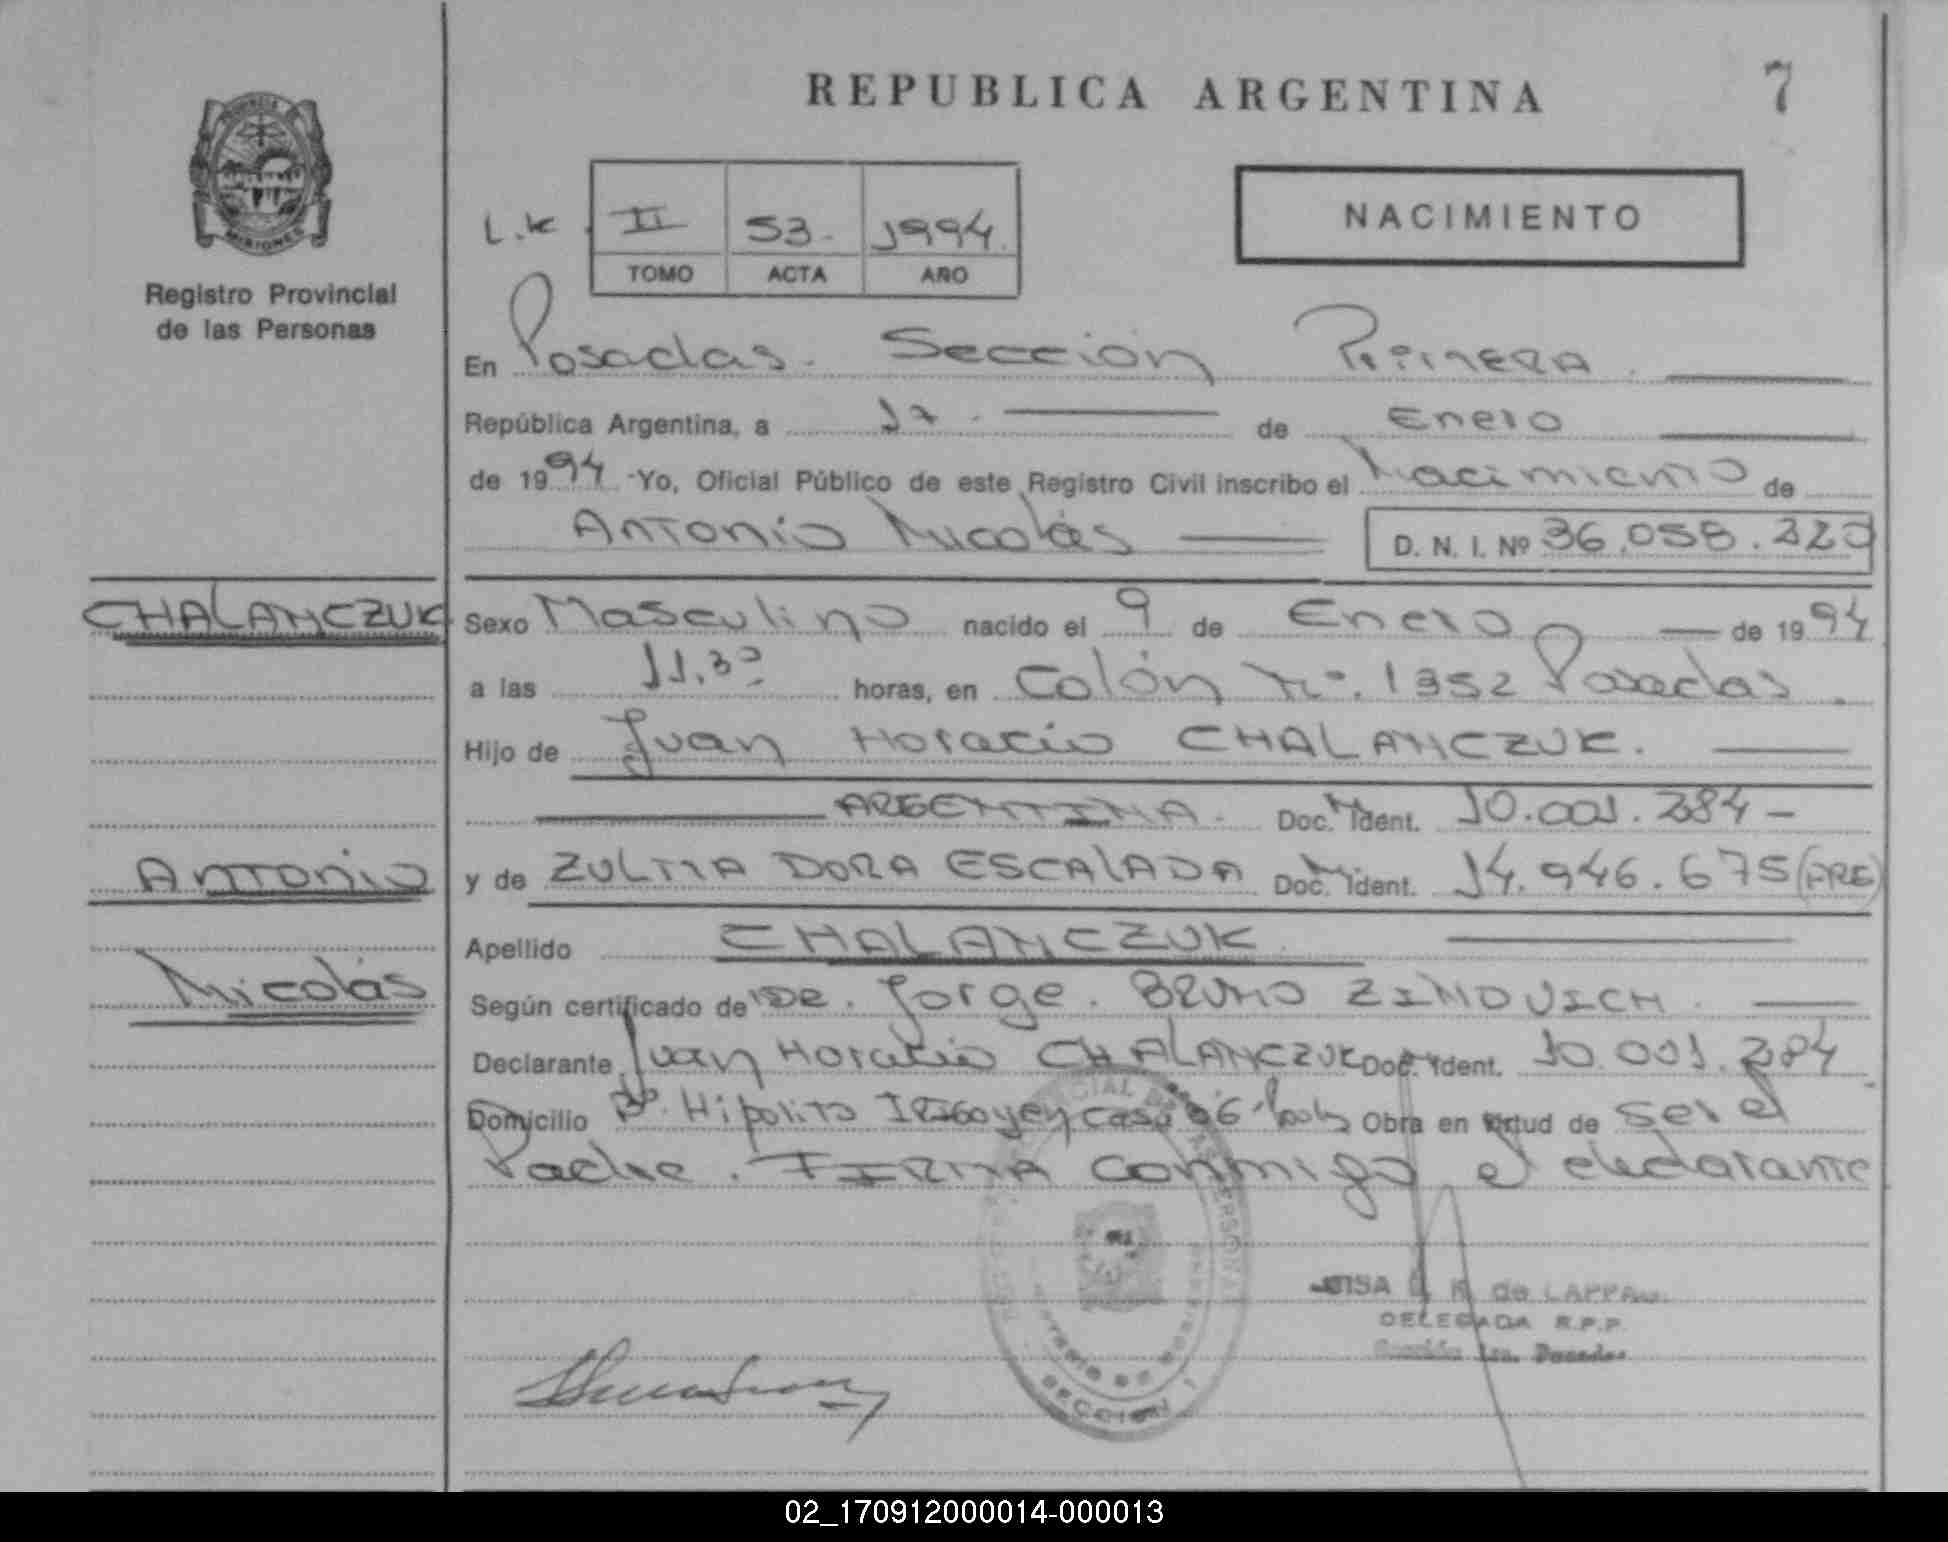 REPUBLICA ARGENTINA
7
PROVINCIA
MISIONES
Registro Provincial
de las Personas
II 53. 1994.
TOMO ACTA AÑO
NACIMIENTO
En Posadas. Sección Primera.
República Argentina, a 17. de Enero
de 1994 - Yo, Oficial Público de este Registro Civil inscribo el Nacimiento de
Antonio Nicolás D. N. I. Nº 36.058.220
CHALANCZUK
Sexo Masculino nacido el 9 de Enero de 1994
a las 11.30 horas, en Colón Nº. 1352 Posadas.
Hijo de Juan Horacio CHALANCZUK.
ARGENTINA. Doc. Ident. 10.001.284 -
Antonio
y de ZULMA DORA ESCALADA Doc. Ident. 14.946.675 (PRE)
Apellido CHALANCZUK
Nicolás
Según certificado de DR. Jorge. BRUNO ZINOVICH.
Declarante Juan Horacio CHALANCZUK Doc. Ident. 10.001.284
Domicilio Bº. Hipolito IRIGOyen casa 66 Obra en virtud de ser el
Padre. FIRMA conmigo el declarante
de LAPPA
DELEGADA R.P.P.
Sección 1ra. Posadas
SECCION 1
02_170912000014-000013